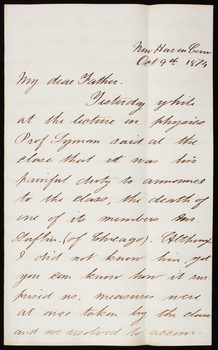 New Haven Conn
Oct 9th 1874
My dear Father.
Yesterday while
at the lecture on physics
Prof. Lyman said at the
close that it was his
painful duty to announce
to the class, the death of
one of its members Mr.
Claflin, (of Chicago). Although
I did not know him, yet
you can know how it sur
prised us. measures were
at once taken by the class
and we resolved to accom-